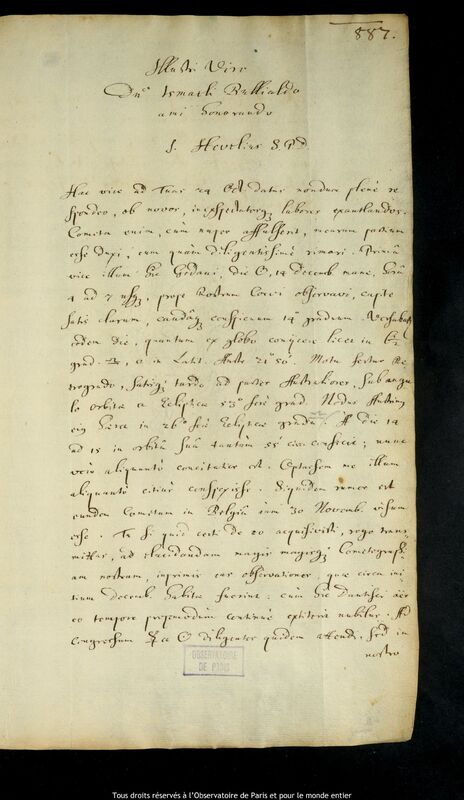 887.
Illustri Viro
Dno Ismaeli Bullialdo
amico honorando
J. Hevelius S. P. D.
Hac vice ad Tuas 24 Oct. datas nondum plenè re
spondeo, ob novos, inexspectatosq; labores exantlandos.
Cometa enim, cùm nuper affulsent, mearum partium
esse duxi, eum quàm diligentissimè rimari. Primâ
vice illum hic Gedani, die ☉, 14 Decemb. mane, horâ
4 ad 7 usq;, prope Rostrum Corvi observavi, capite
satis clarum, caudâq; conspicuum 14 graduum. Versabatur
eodem die, quantum ex globo conijcere licet in
grad. ♎, et in Latit. Austr. 21° 50'. Motu fertur Re
trogrado, satisq; tardo ad partes Australiores, sub angu
lo orbitae et Eclipticae 53° ferè grad. Nodus
eius circa in 26° ferè Eclipticae gradu. A die 14
ad 15 in orbitâ suâ tantùm 55' circa confecit; nunc
verò aliquantò concitatior est. Optassem me illum
aliquantò citiùs conspexisse. Siquidem rumor est
eundem Cometam in Belgio iam 30 Novemb. visum
esse. Tu si quid certi de eo acquisivisti, rogo trans-
mittas, ad elucidandam magis magisq; Cometograph.
am nostram, inprimis eas observationes, quae circa ini
tium Decemb. habitae fuerint: cùm hic Dantisci aër
eo tempore propemodùm continuè extiterit nubilus. Ad
Congressum ☿ et ☉ diligenter quidem attendi, sed in
nostro
OBSERVATOIRE
DE PARIS
Tous droits réservés à l'Observatoire de Paris et pour le monde entier